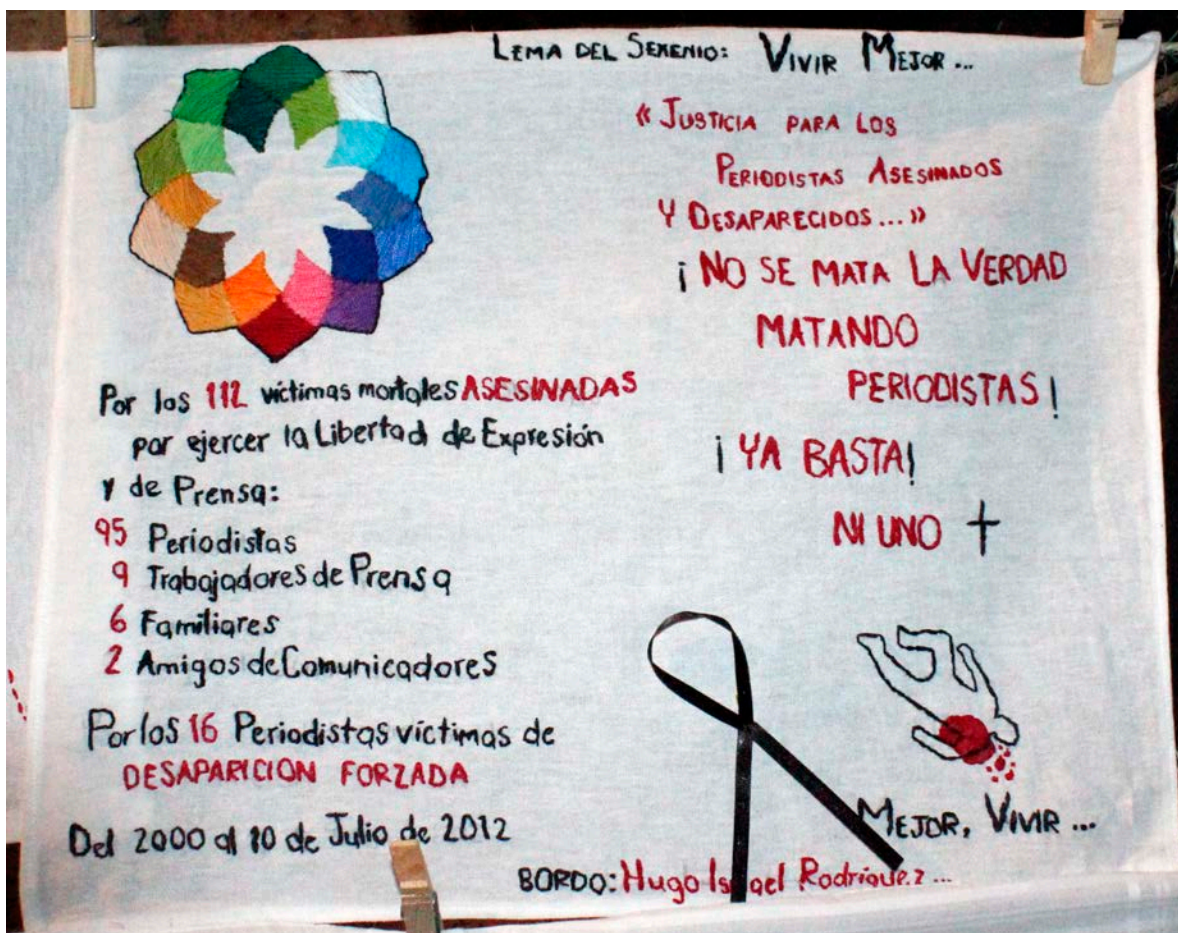 LEMA DEL SEXENIO: VIVIR MEJOR...
« JUSTICIA PARA LOS
PERIODISTAS ASESINADOS
Y DESAPARECIDOS...»
¡ NO SE MATA LA VERDAD
MATANDO
PERIODISTAS!
¡ YA BASTA!
NI UNO †
Por las 112 víctimas mortales ASESINADAS
por ejercer la Libertad de Expresión
y de Prensa:
95 Periodistas
9 Trabajadores de Prensa
6 Familiares
2 Amigos de Comunicadores
Por los 16 Periodistas víctimas de
DESAPARICION FORZADA
Del 2000 al 10 de Julio de 2012
MEJOR, VIVIR ...
BORDO: Hugo Israel Rodríguez...